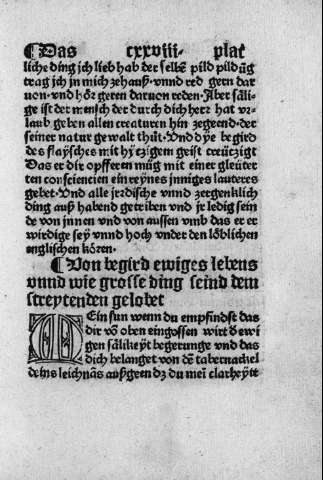 ¶ Das cxxviii· plat
liche ding jch lieb hab der selbẽ pild pildũg
trag jch in mich zehauß· vnnd red gern dar
uon· vnd hör geren daruon reden· Aber säli-
ge ist der mensch der durch dich herr hat vr-
laub geben allen creaturen hin zegeend· der
seiner natur gewalt thüt· Vnd dye begird
des flaysches mit hytzigem geist creütziget
Das er dir opfferen müg mit einer gleüter
ten conscientien ein reynes jnniges lauteres
gebet· Vnd alle jrdische vnnd zergenklich
ding auß habend getriben vnd je ledig sein
de von jnnen vnd von aussen vmb das er er
wirdige sey vnnd hoch vnder den löblichen
englischen kören·
¶ Von begird ewiges lebens
vnnd wie grosse ding seind dem
streytenden gelobet
MEin sun wenn du empfindst das
dir võ oben eingossen wirt d ewi
gen sälikeyt begerunge vnd das
dich belanget von dẽ tabernackel
deins leichnãs außgeen dz du mei clarheytt